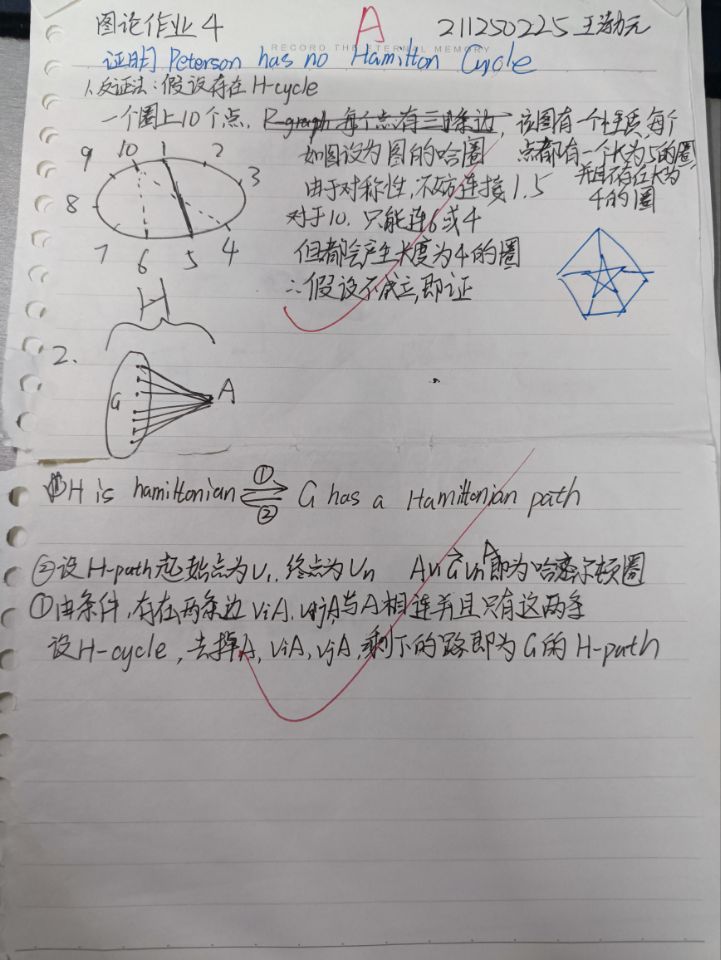 图论作业4
A
211250225
RECORD THE ETERNAL MEMORY
证明 Peterson has no Hamilton Cycle
1.反证法:假设存在H-cycle
一个圈上10个点, R-graph 每个点有三条边, 该图有一个性质,每个
点都有一个长为5的圈
并且不存在长为
4的圈
如图设为图的哈圈
由于对称性,不妨连接1.5
对于10.只能连6或4
但都会产生长度为4的圈
∴假设不成立,即证
9 10 1 2
3
8
7 6 5 4
H
2.
G A
(1)H is hamiltonian ①⇌② G has a Hamiltonian path
②设H-path起始点为V₁,终点为Vn 即为哈密尔顿圈
①由条件,存在两条边ViA,VjA,与A相连并且只有这两条
设H-cycle,去掉A,ViA,VjA,剩下的路即为G的H-path